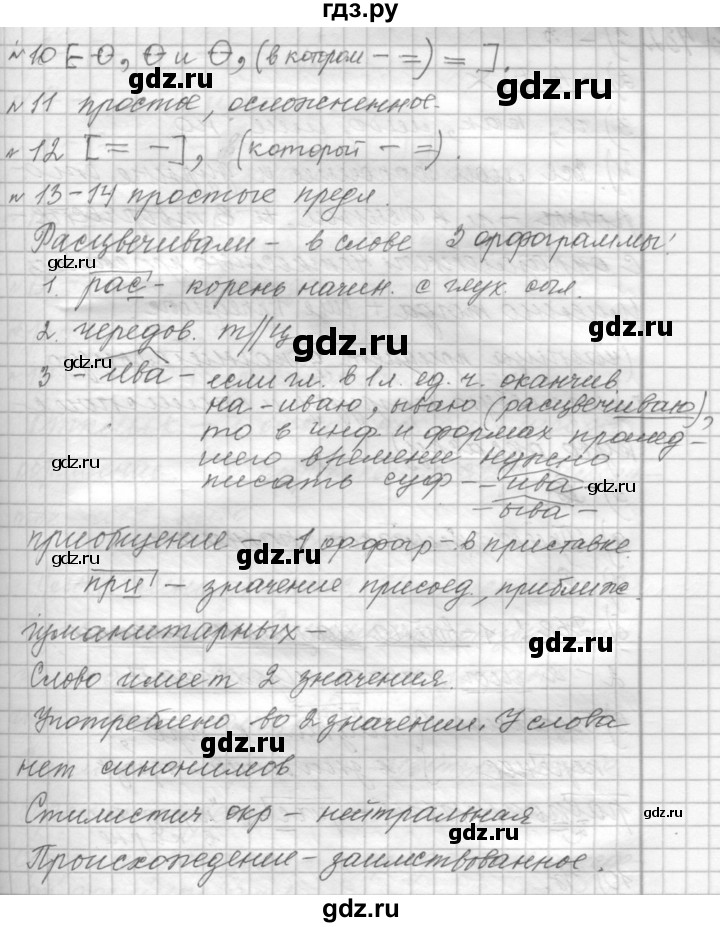 гдз.ру
№ 10 [– O, O и O, (в котром – =) = ].
№ 11 простое, осложненное.
№ 12 [= –], (который – =).
№ 13-14 простые предл.
Расцвечивали – в слове 3 орфограммы:
gdz.ru
1. рас – корень начин. с глух. согл.
2 чередов. т//ц
3 – ива – если гл. в 1 л. ед. ч. оканчив
на – иваю, ываю (расцвечиваю),
то в инф. и формах прошед-
шего времени нужно
писать суф – – ива
– ыва –
приобщение – 1 орфогр – в приставке.
при – значение присоед., приближ
гуманитарных –
Слово имеет 2 значения.
Употреблено во 2 значении. У слова
нет синонимов
Стилистич. окр – нейтральная
Происхождение – заимствованное.
gdz.ru